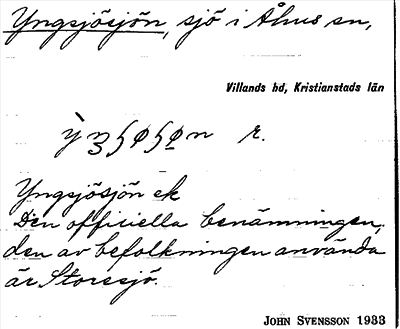 Yngsjösjön, sjö i Åhus sn,
Villands hd, Kristianstads län
r.
Yngsjösjön ek
Den officiella benämningen,
den av befolkningen använda
är Storesjö.
JOHN SVENSSON 1933